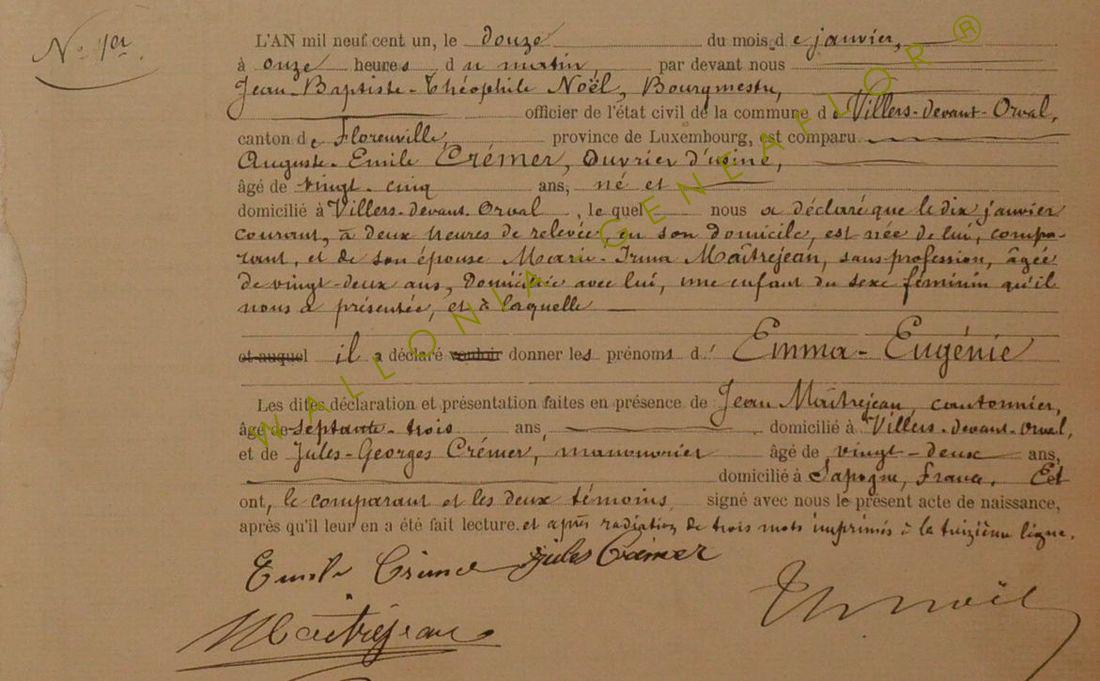 N° 1er
L'AN mil neuf cent un, le douze du mois de janvier,
à onze heures du matin par devant nous
Jean-Baptiste-Théophile Noël, Bourgmestre,
officier de l'état civil de la commune de Villers-devant-Orval,
canton de Florenville, province de Luxembourg, est comparu
Auguste-Emile Crémer, Ouvrier d'usine,
âgé de vingt-cinq ans, né et
domicilié à Villers-devant-Orval, le quel nous a déclaré que le dix janvier
courant, à deux heures de relevée en son domicile, est née de lui, compa-
rant, et de son épouse Marie-Irma Maîtrejean, sans profession, âgée
de vingt-deux ans, Domiciliée avec lui, une enfant du sexe féminin qu'il
nous a présentée, et à laquelle
et auquel il a déclaré vouloir donner les prénoms d' Emma-Eugénie
Les dites déclaration et présentation faites en présence de Jean Maîtrejean, cantonnier,
âgé de septante-trois ans, domicilié à Villers-devant-Orval,
et de Jules-Georges Crémer, manouvrier âgé de vingt-deux ans,
domicilié à Sapogne, France. Et
ont, le comparant et les deux témoins, signé avec nous le présent acte de naissance,
après qu'il leur en a été fait lecture. et après radiation de trois mots imprimés à la treizième ligne.
Emile Crémer Jules Crémer
Th Noël
Maitrejean
WALLONIA GENEAFLOR ®